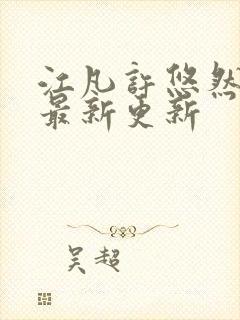 江凡許悠然
最新更新
吴超